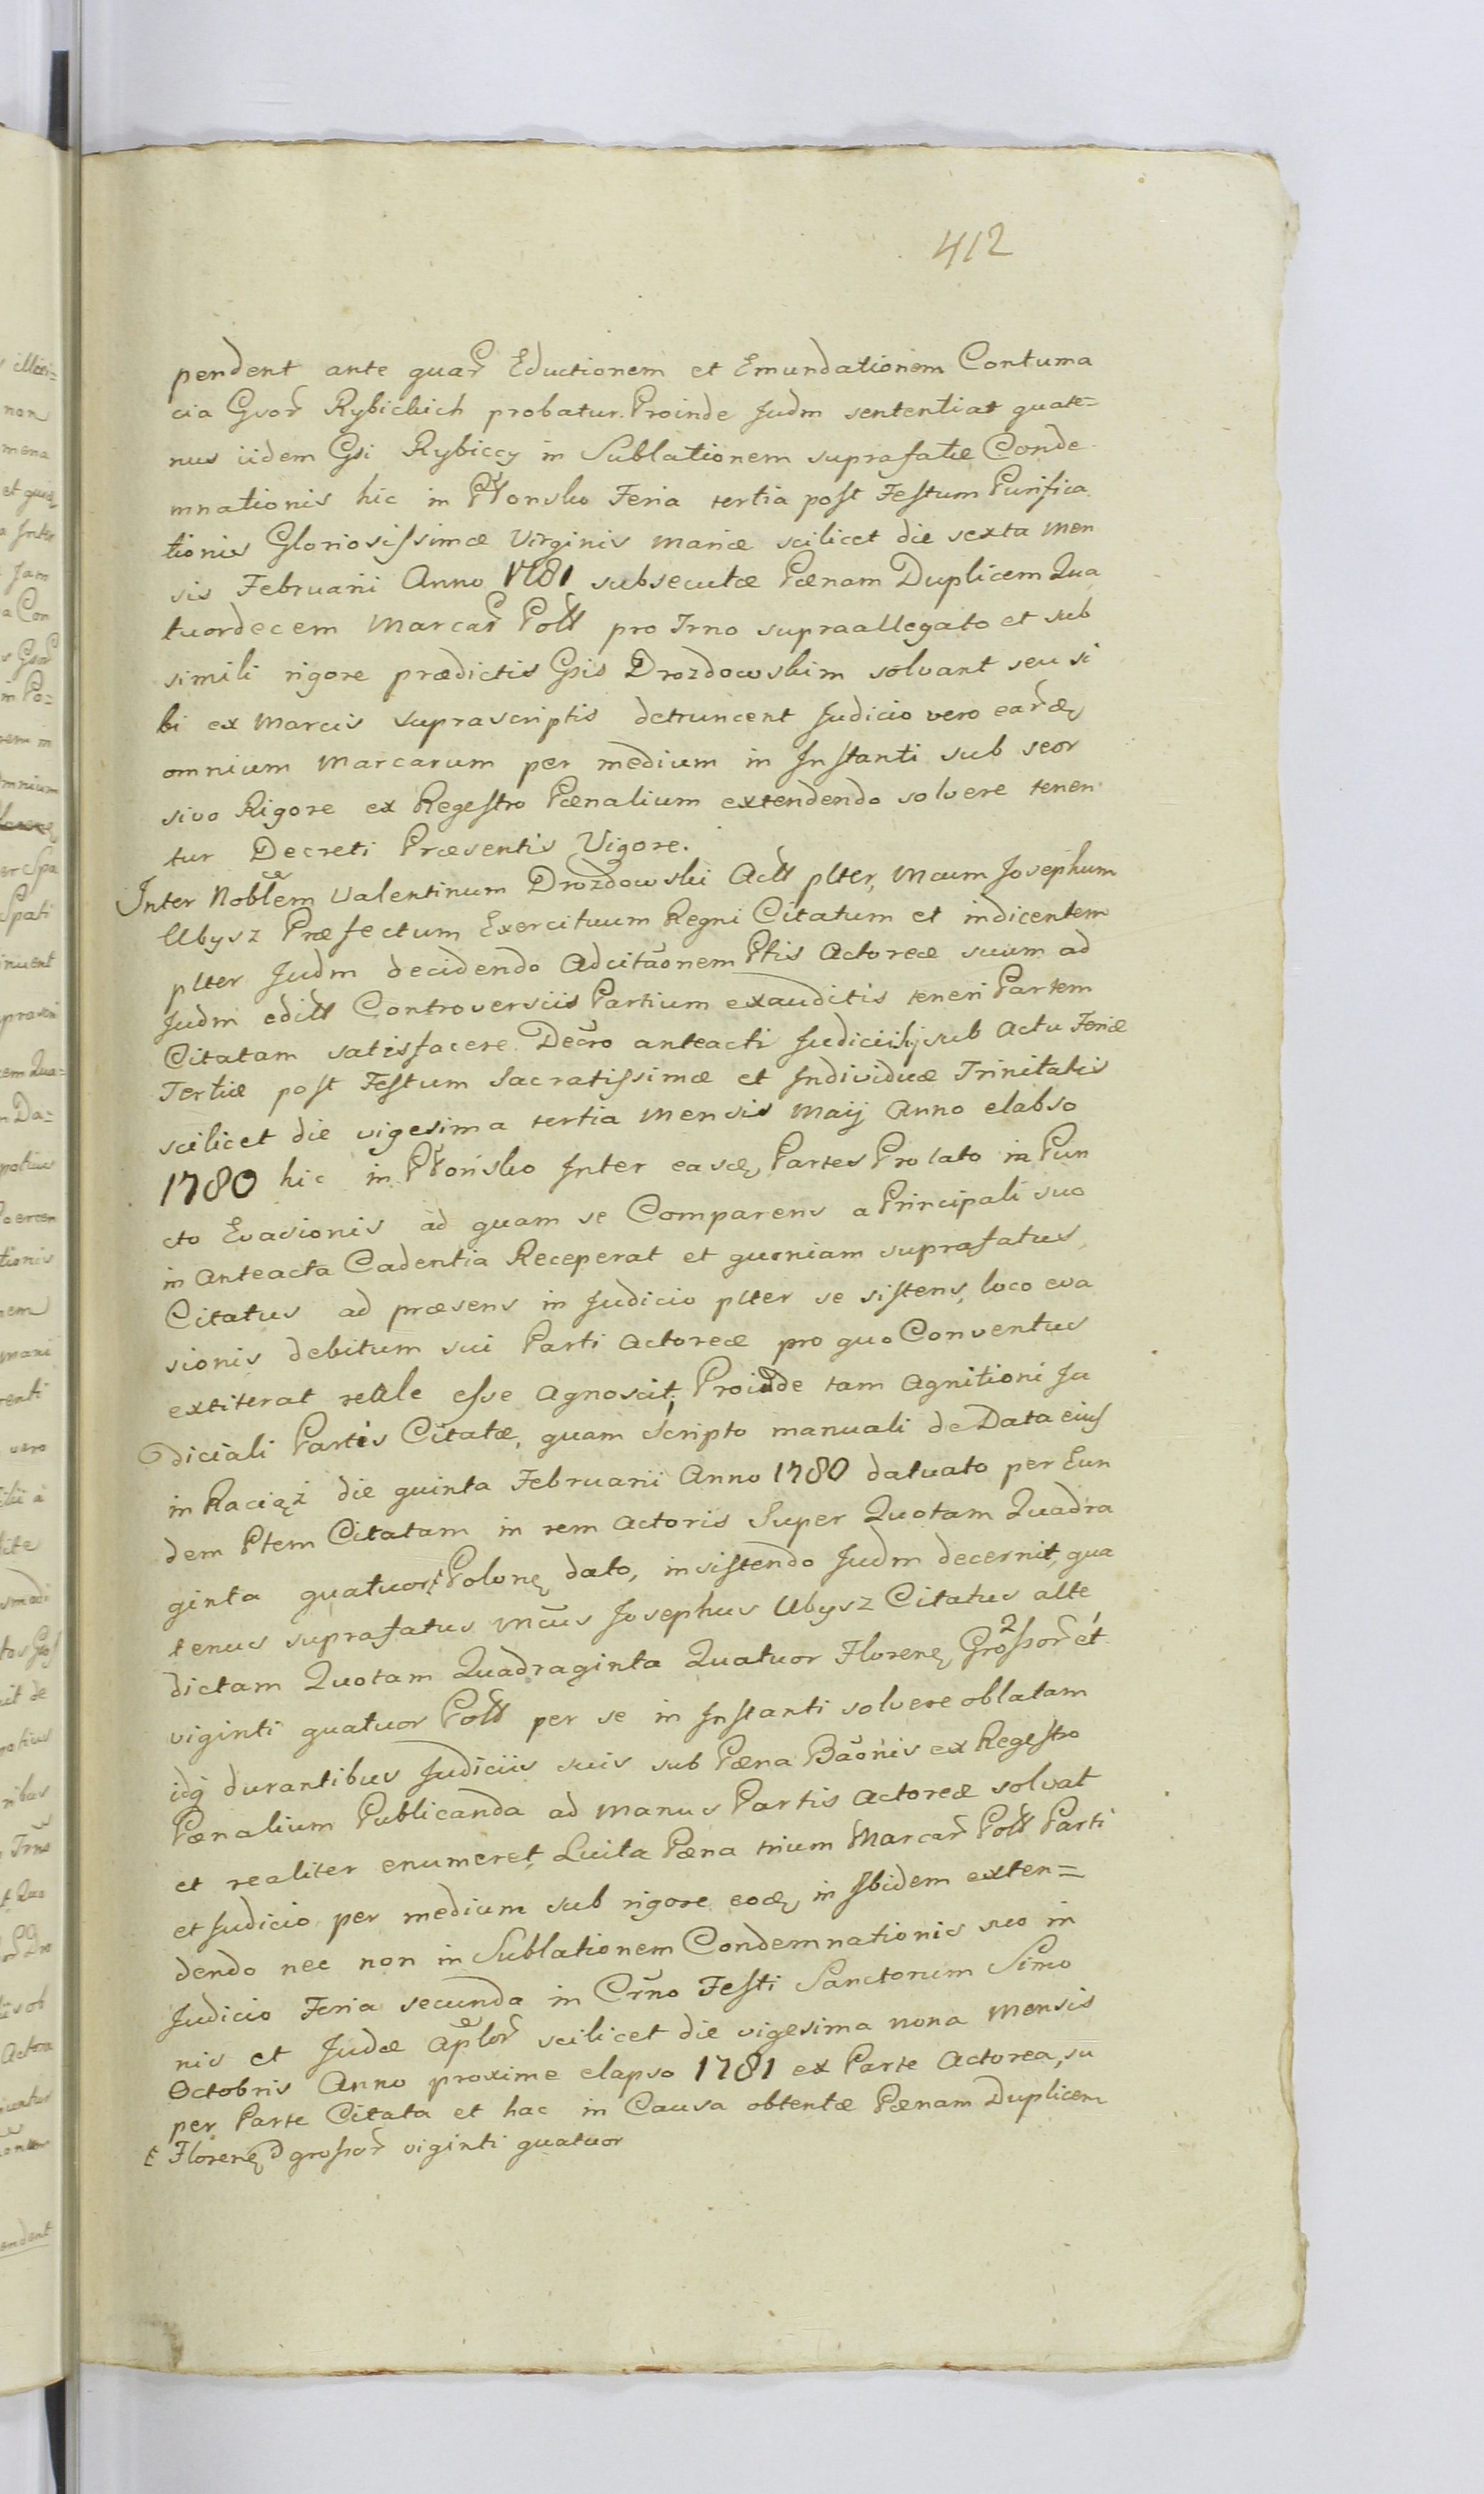 412
pendent ante quar̃ Eductionem et Emundationem Contuma
cia Gsor̃ Rybickich probatur. Proinde Judm sententiat quate=
nus iidem Gsi Rybiccy in Sublationem suprafatæ Conde
mnationis hic in Płonsko Feria tertia post Festum Purifica
tionis Gloriosissimæ Virginis Mariæ scilicet die sexta Men
sis Februarii Anno 1781 subsecutæ Pœnam Duplicem Qua
tuordecem Marcar̃ Poll pro Trno supraallegato et sub
simili rigore prædictis Gsis Drozdowskim solvant seu si
bi ex Marcis suprascriptis detruncent Judicio vero earõe
omnium Marcarum per medium in Instanti sub seor
sivo Rigore ex Regestro Pœnalium extendendo solvere tenen
tur Decreti Præsentis Vigore.
Inter Noblem Valentinum Drozdowski Actt plter, Mcum Josephum
Ubysz Præfectum Exercituum Regni Citatum et indicentem
plter Judm decidendo Adcitãonem Ptis Actoreæ suum ad
Judm editt Controversiis Partium exauditis teneri Partem
Citatam satisfacere Decro anteacti Judicii sub Actu Feriæ
Tertiæ post Festum Sacratissimæ et Individuæ Trinitatis
scilicet die vigesima tertia Mensis Maij Anno elabso
1780 hic in Płońsko Inter easdę Partes Prolato in Pun
cto Evasionis ad quam se Comparens a Principali suo
in Anteacta Cadentia Receperat et quoniam suprafatus
Citatus ad præsens in Judicio plter se sistens, loco eva
sionis debitum sui Parti Actoreæ pro quo Conventus
extiterat reale esse Agnoscit; Proinde tam Agnitioni Ju
diciali Partis Citatæ, quam Scripto manuali de Data eius
in Raciąż die quinta Februarii Anno 1780 datuato per Eun
dem Ptem Citatam in rem Actoris Super Quotam Quadra
ginta quatuor Polonę dato, insistendo Judm decernit, qua
tenus suprafatus Mcus Josephus Ubysz Citatus alte
dictam Quotam Quadraginta Quatuor Florenę Grossor̃ et
viginti quatuor Poll per se in Instanti solvere oblatam
idq durantibus Judiciis suis sub Pœna Bãonis ex Regestro
Pœnalium Publicanda ad manus Partis Actoreæ solvat
et realiter enumeret, Luita Pœna trium Marcar̃ Poll Parti
et Judicio per medium sub rigore eodę in Ibidem exten=
dendo nec non in Sublationem Condemnationis suo in
Judicio Feria secunda in Crñno Festi Sanctorum Simo
nis et Judæ Aplor̃ scilicet die vigesima nona Mensis
Octobris Anno proxime elapso 1781 ex Parte Actorea, su
per Parte Citata et hac in Causa obtentæ Pœnam Duplicem
Florenę grossor̃ viginti quatuor